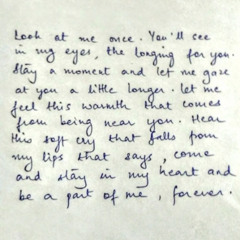 Look at me once. You'll see
in my eyes, the longing for you.
Stay a moment and let me gaze
at you a little longer. let me
feel this warmth that comes
from being near you. Hear
this soft cry that falls from
my lips that says, come
and stay in my heart and
be a part of me, forever.